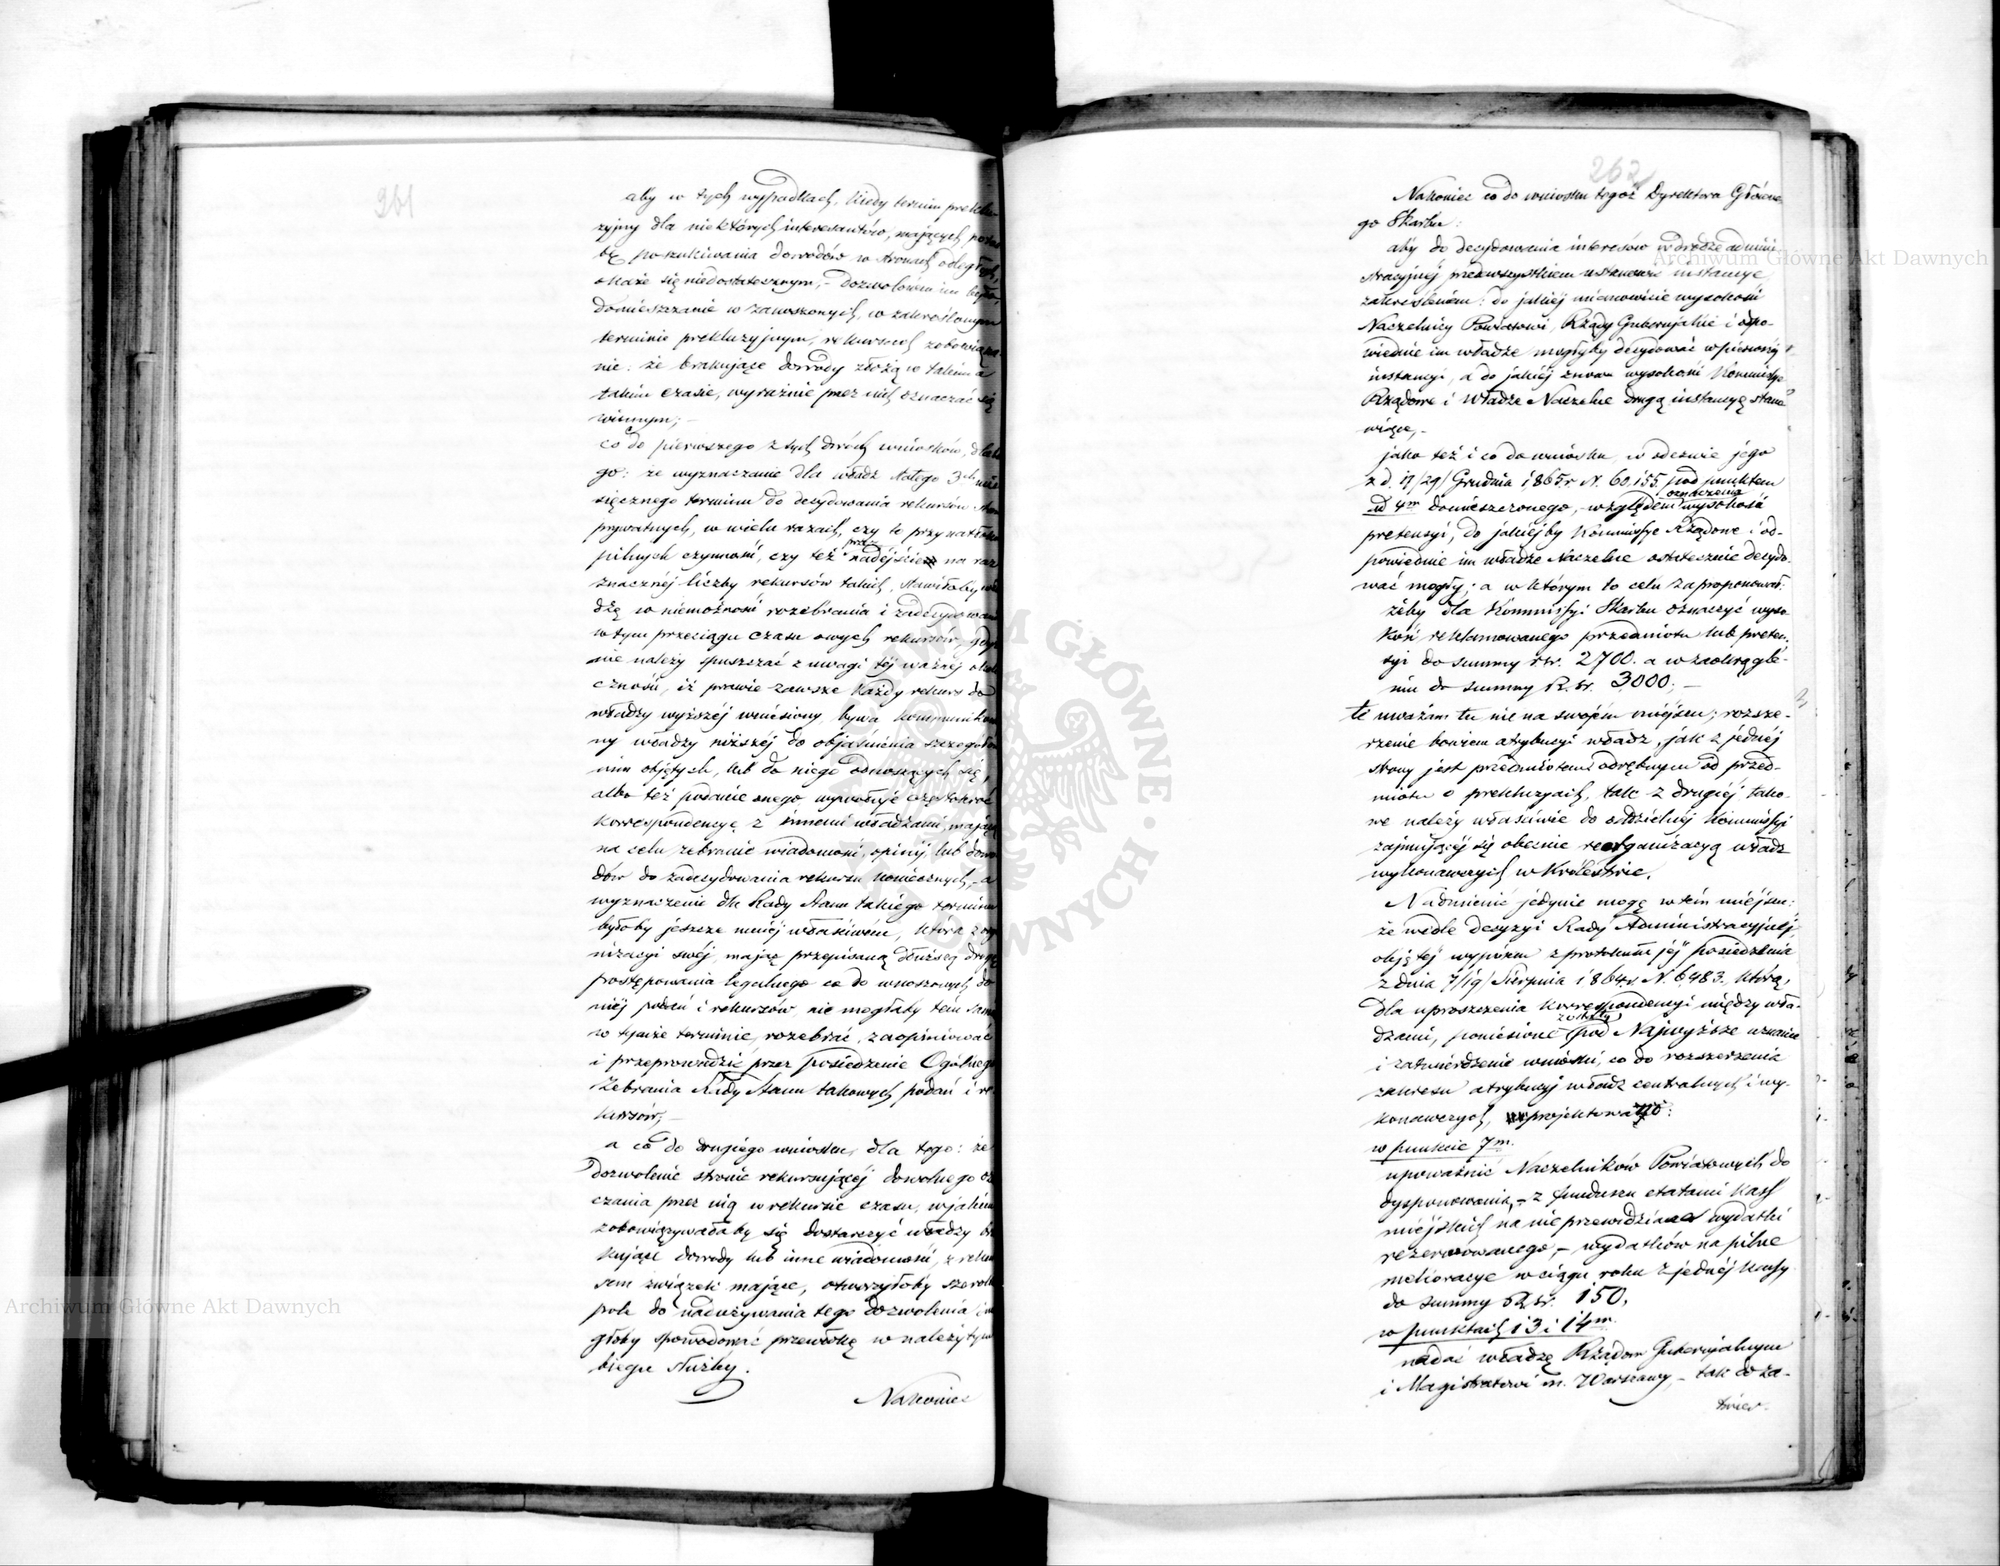 261
aby w tych wypadkach, kiedy termin preklu
zyjny dla niektórych interesantów, mających potrze
bę poszukiwania dowodów w stronach odległych,
okaże się niedostatecznym, – dozwolonem im było,
domieszczanie w zanoszonych, w zakreślonym
terminie prekluzyjnym, rekursach zobowiąza
nie: że brakujące dowody złożą w takim a
takim czasie, wyraźnie przez nich oznaczać się
winnym; –
co do pierwszego z tych dwóch wniosków, dla te
go: że wyznaczanie dla władz stałego 3ch mie
sięcznego terminu do decydowania rekursów stron
prywatnych, w wielu razach, czy to przy natłoku
pilnych czynności, czy też przez nadejście na raz
znacznej liczby rekursów takich, stawiłoby wła
dzę w niemożności rozebrania i zadecydowania
w tym przeciągu czasu owych rekursów, gdyż
nie należy spuszczać z uwagi tej ważnej okoli
czności, iż prawie zawsze każdy rekurs do
władzy wyższej wniesiony, bywa kommuniko
ny władzy niższej do objaśnienia szczegółów
nim objętych, lub do niego odnoszących się,
albo też podanie onego wywołuje częstokroć
korrespondencyę z innemi władzami, mającą
na celu zebranie wiadomości, opinij, lub dowo
dów do zadecydowania rekursu koniecznych, – a
wyznaczenie dla Rady Stanu takiego terminu
byłoby jeszcze mniej właściwem, która z orga
nizacyi swej, mając przepisaną dłuższą drogę
postępowania legalnego co do wnoszonych do
niej podań i rekursów, nie mogłaby tem samem
w tymże terminie, rozebrać, zaopiniować
i przeprowadzić przez posiedzenie Ogólnego
Zebrania Rady Stanu takowych podań i re
kursów; –
a co do drugiego wniosku, dla tego: że
dozwolenie stronie rekursującej dowolnego ozna
czania przez nią w rekursie czasu, w jakim
zobowiązywałaby się dostarczyć władzy bra
kujące dowody lub inne wiadomości, z rekur
sem związek mające, otworzyłoby szerokie
pole do nadużywania tego dozwolenia i mo
głoby spowodować przewłokę w należytym
biegu służby.
Nakoniec
262
Nakoniec co do wniosku tegoż Dyrektora Główne
go Skarbu:
aby do decydowania interesów w drodze admini
stracyjnej przedewszystkiem ustanowić instancye,
zakreśleniem: do jakiej mianowicie wysokości
Naczelnicy Powiatowi, Rządy Gubernialne i odpo-
wiednie im władze mogłyby decydować w pierwszej
instancyi, a do jakiej znowu wysokości Kommissye
Rządowe i Władze Naczelne drugą instancyę stano
wiące, –
jako też i co do wniosku, w odezwie jego
z d. 17/29 Grudnia 1865 r. N. 60,155 pod punktem
ad 4m domieszczonego, względem oznaczenia wysokości
pretensyi, do jakiejby Kommissye Rządowe i od-
powiednie im władze Naczelne ostatecznie decydo-
wać mogły; a w którym to celu zaproponował:
żeby dla Kommissyi Skarbu oznaczyć wyso
kość reklamowanego przedmiotu lub preten-
syi do summy rsr. 2700. a w zaokrągle-
niu do summy R.sr. 3000; –
te uważam tu nie na swojem miejscu; rozsze-
rzenie bowiem atrybucyi władz, jak z jednej
strony jest przedmiotem odrębnym od przed-
miotu o prekluzyach, tak z drugiej tako-
we należy właściwie do oddzielnej Kommissyi
zajmującej się obecnie reorganizacyą władz
wykonawczych w Królestwie.
Nadmienić jedynie mogę w tem miejscu:
że wedle decyzyi Rady Administracyjnej,
objętej wypisem z protokułu jej posiedzenia
z dnia 7/19 Sierpnia 1864 r. N. 6,483. którą,
dla uproszczenia korrespondencyi między wła-
dzami, poniesione zostały pod Najwyższe uznanie
i zatwierdzenie wnioski, co do rozszerzenia
zakresu atrybucyj władz centralnych i wy-
konawczych, projektowano:
w punkcie 7m.
upoważnić Naczelników Powiatowych do
dysponowania, – z funduszu etatami kass
miejskich na nieprzewidziane wydatki
rezerwowanego, – wydatków na pilne
melioracye w ciągu roku z jednej kassy
do summy R.sr. 150,
w punktach 13 i 14m.
nadać władzę Rządom Gubernialnym
i Magistratowi m. Warszawy, – tak do za-
twier-
Archiwum Główne Akt Dawnych
Archiwum Główne Akt Dawnych
ARCHIWUM GŁÓWNE AKT DAWNYCH